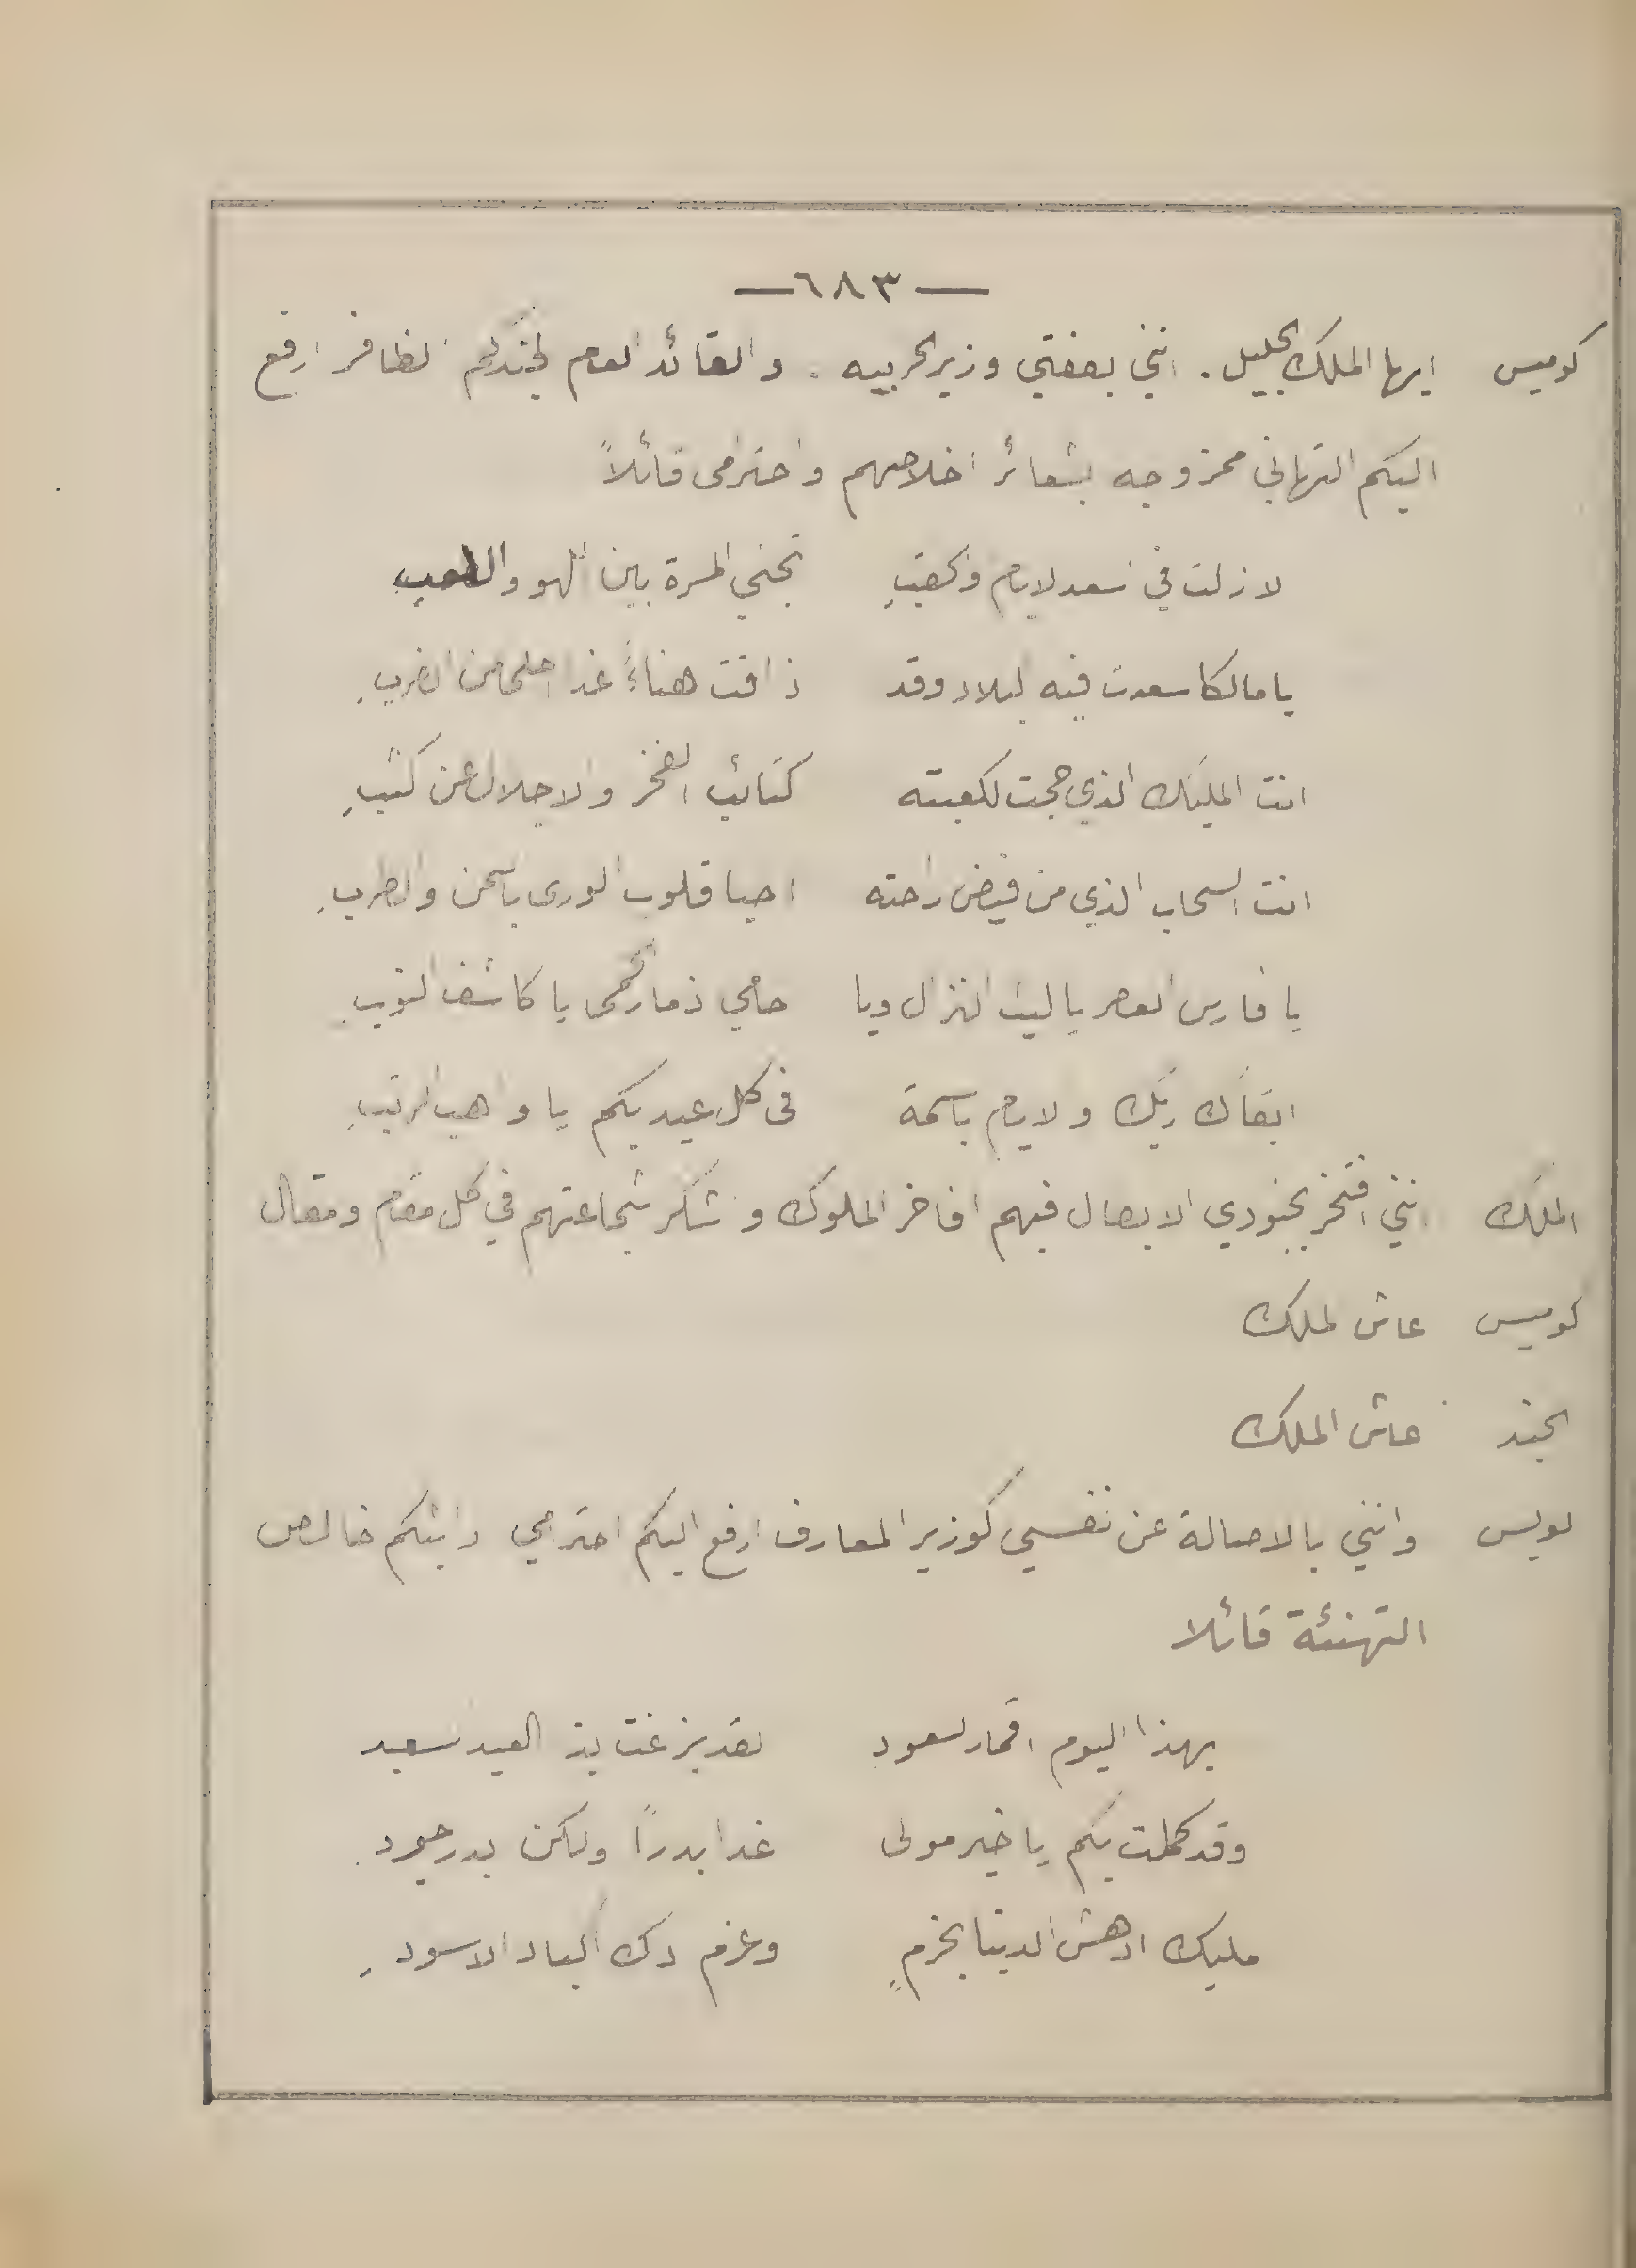 —٦٨٣—
كوميس ايها الملك الجليل. انني بصفتي وزير الحربيه. والقائد العام لجندكم الظافر ارفع
اليكم التهاني ممزوجه بشعائر اخلاصهم واحترامى قائلاً
لا زلت في سعد الايام والحقبِ تجني المسرة بين اللهو واللعبِ
يا مالكا سعدت فيه البلاد وقد ذاقت هناءً غدا احلى من الضربِ
انت المليك الذي حجت لكعبته كتائب الفخر والاجلال عن كثبِ
انت السحاب الذي من فيض راحته احيا قلوب الورى باليمن والطربِ
يا فارس العصر يا ليث النزال ويا حامي ذمار الحمى يا كاشف النوبِ
ابقاك ربك والايام باسمة فى كل عيد بكم يا واهب الرتبِ
الملك انني افتخر بجنودي الابطال فبهم افاخر الملوك واشكر شجاعتهم في كل مقام ومقال
كوميس عاش الملك
الجند عاش الملك
لويس وانني بالاصالة عن نفسي كوزير المعارف ارفع اليكم احترامي وابثكم خالص
التهنئة قائلا
بهذا اليوم اقمار السعود لقد بزغت بذا العيد السعيد
وقد كملت بكم يا خير مولى غدا بدراً ولكن بدر جود
مليك ادهش الدنيا بحزمٍ وعزم دك اكباد الاسودِ